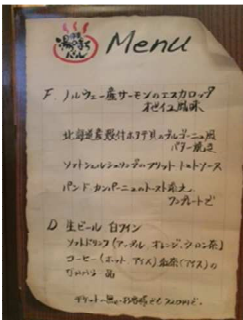 Menu
F. ノルウェー産サーモンのエスカロップ
オゼイユ風味
北海道産殻付ホタテ貝のブルゴーニュ風
バター焼き
ソフトシェルシュリンプのフリット トマトソース
パンド.カンパーニュのトースト添え
ワンプレートで
D 生ビール 白ワイン
ソフトドリンク(アップル オレンジ・ウーロン茶)
コーヒー(ホット アイス)紅茶(アイス)の
一品